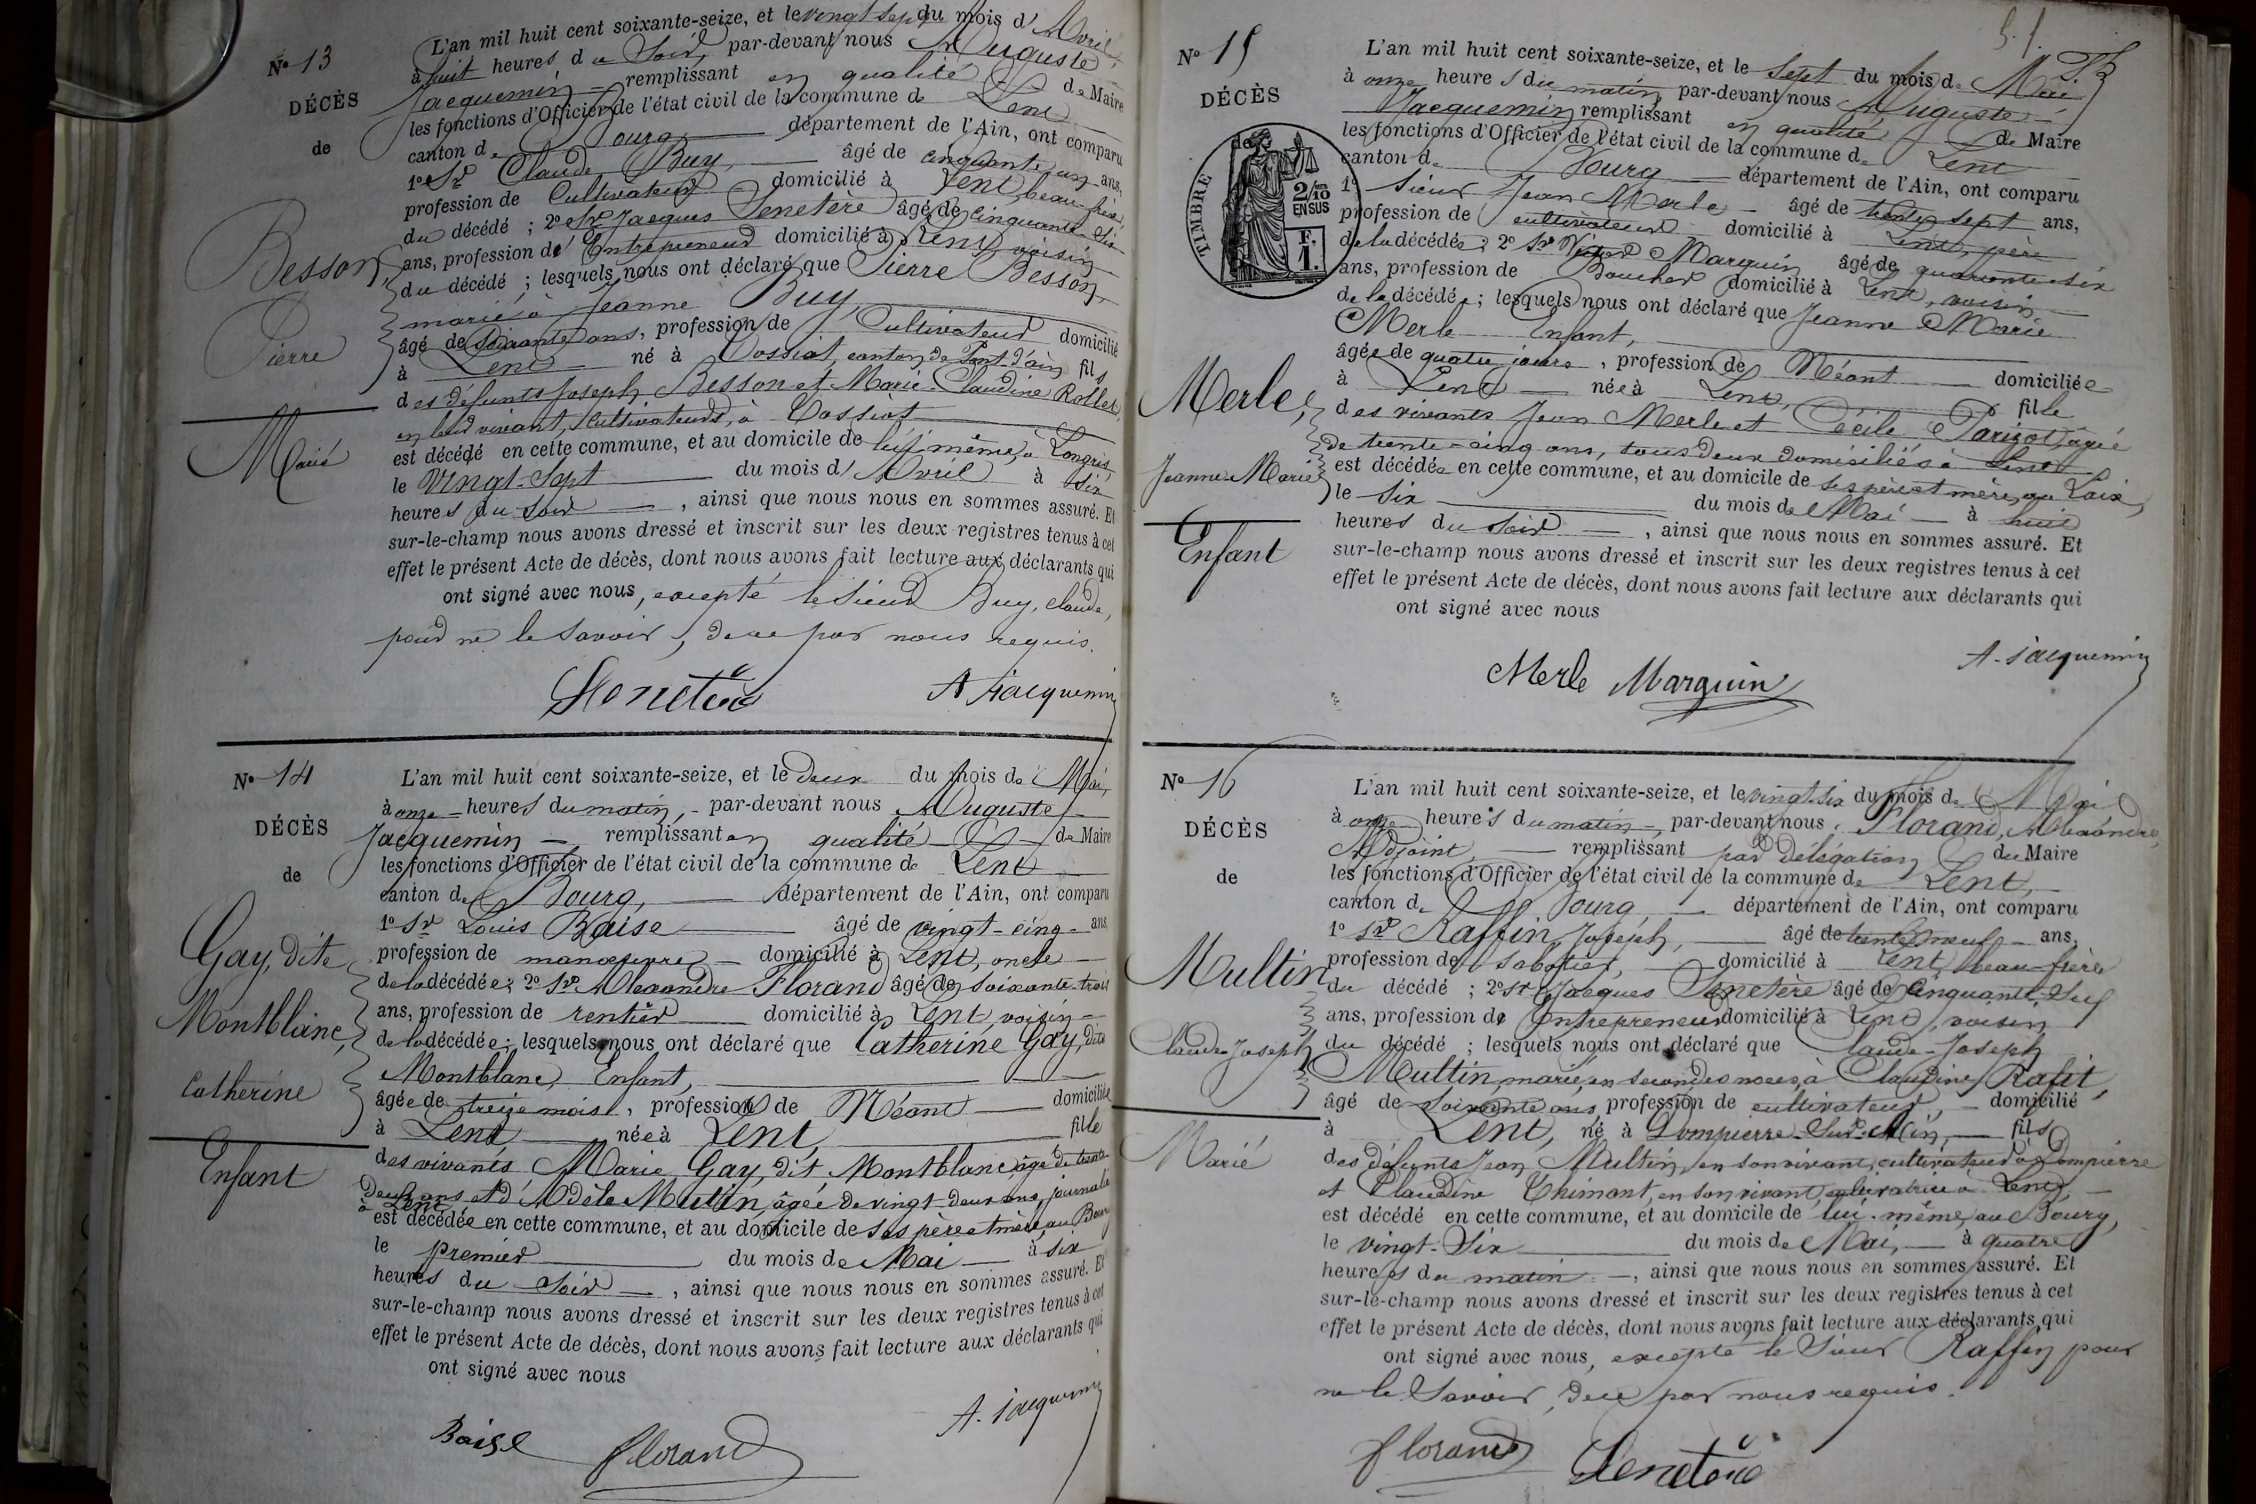 N° 13
DÉCÈS
de
Besson
Pierre
Marié
L'an mil huit cent soixante-seize, et le vingt sept du mois d'Avril,
à huit heures du Soir, par-devant nous Auguste
Jacquemin remplissant en qualité de Maire
les fonctions d'Officier de l'état civil de la commune de Lent
canton de Bourg département de l'Ain, ont comparu
1° Sr Claude Buy, âgé de cinquante un ans,
profession de Cultivateur domicilié à Lent, beau-frère
du décédé ; 2° Sr Jacques Senetère âgé de cinquante six
ans, profession d'Entrepreneur domicilié à Lent, voisin
du décédé ; lesquels nous ont déclaré que Pierre Besson,
marié à Jeanne Buy,
âgé de soixante ans, profession de Cultivateur domicilié
à Lent né à Tossiat, canton de Pont-d'ain fils
des défunts Joseph Besson et Marie-Claudine Rollet,
en leur vivant, Cultivateurs, à Tossiat
est décédé en cette commune, et au domicile de lui même, à Longris,
le Vingt-Sept du mois d'Avril à six
heures du soir, ainsi que nous nous en sommes assuré. Et
sur-le-champ nous avons dressé et inscrit sur les deux registres tenus à cet
effet le présent Acte de décès, dont nous avons fait lecture aux déclarants qui
ont signé avec nous, excepté le Sieur Buy, Claude,
pour ne le savoir, de ce par nous requis.
Senetère A. Jacquemin
N° 14
DÉCÈS
de
Gay, dite
Montblanc,
Catherine
Enfant
L'an mil huit cent soixante-seize, et le deux du mois de Mai,
à onze heures du matin, par-devant nous Auguste
Jacquemin remplissant en qualité de Maire
les fonctions d'Officier de l'état civil de la commune de Lent
canton de Bourg, département de l'Ain, ont comparu
1° Sr Louis Baise âgé de vingt-cinq ans
profession de manœuvre domicilié à Lent, oncle
de la décédée ; 2° Sr Alexandre Florand âgé de soixante-trois
ans, profession de rentier domicilié à Lent, voisin
de la décédée ; lesquels nous ont déclaré que Catherine Gay, dite
Montblanc, Enfant,
âgée de treize mois, profession de Néant domiciliée
à Lent née à Lent, fille
des vivants Marie Gay, dit Montblanc, âgé de trente
deux ans et d'Adèle Multin, âgée de vingt-deux ans, journaliers
à Lent
est décédée en cette commune, et au domicile de ses père et mère, au Bourg
le premier du mois de Mai à six
heures du soir, ainsi que nous nous en sommes assuré. Et
sur-le-champ nous avons dressé et inscrit sur les deux registres tenus à cet
effet le présent Acte de décès, dont nous avons fait lecture aux déclarants qui
ont signé avec nous
Baise Florand A. Jacquemin
N° 15
DÉCÈS
de
TIMBRE
2/10
EN SUS
F.
1.
Merle,
Jeanne-Marie
Enfant
L'an mil huit cent soixante-seize, et le sept du mois de Mai
à onze heures du matin, par-devant nous Auguste
Jacquemin remplissant en qualité de Maire
les fonctions d'Officier de l'état civil de la commune de Lent
canton de Bourg département de l'Ain, ont comparu
1° Sieur Jean Merle âgé de trente sept ans,
profession de cultivateur domicilié à Lent, père
de la décédée ; 2° Sr Victor Marquin âgé de quarante-six
ans, profession de Boucher domicilié à Lent, voisin
de la décédée ; lesquels nous ont déclaré que Jeanne Marie
Merle Enfant,
âgée de quatre jours, profession de Néant domiciliée
à Lent née à Lent, fille
des vivants Jean Merle et Cécile Parizot, âgée
de trente-cinq ans, tous deux domiciliés à Lent
est décédée en cette commune, et au domicile de ses père et mère, au Laix,
le six du mois de Mai à huit
heures du soir, ainsi que nous nous en sommes assuré. Et
sur-le-champ nous avons dressé et inscrit sur les deux registres tenus à cet
effet le présent Acte de décès, dont nous avons fait lecture aux déclarants qui
ont signé avec nous
Merle Marquin A. Jacquemin
N° 16
DÉCÈS
de
Multin
Claude-Joseph
Marié
L'an mil huit cent soixante-seize, et le vingt-six du mois de Mai
à onze heures du matin, par-devant nous, Florand, Alexandre,
Adjoint, remplissant par délégation du Maire
les fonctions d'Officier de l'état civil de la commune de Lent,
canton de Bourg, département de l'Ain, ont comparu
1° Sr Raffin, Joseph, âgé de trente neuf ans,
profession de sabotier, domicilié à Lent, beau-frère
du décédé ; 2° Sr Jacques Senetère âgé de Cinquante Six
ans, profession de Entrepreneur domicilié à Lent, voisin
du décédé ; lesquels nous ont déclaré que Claude-Joseph
Multin, marié en secondes noces, à Claudine Rafit,
âgé de soixante ans, profession de cultivateur, domicilié
à Lent, né à Dompierre-Sur-Ain, fils
des défunts Jean Multin, en son vivant, cultivateur à Dompierre
et Claudine Thimont, en son vivant, cultivatrice à Lent,
est décédé en cette commune, et au domicile de lui-même, au Bourg,
le vingt-Six du mois de Mai, à quatre
heures du matin, ainsi que nous nous en sommes assuré. Et
sur-le-champ nous avons dressé et inscrit sur les deux registres tenus à cet
effet le présent Acte de décès, dont nous avons fait lecture aux déclarants qui
ont signé avec nous, excepté le Sieur Raffin pour
ne le savoir, de ce par nous requis.
Florand Senetère